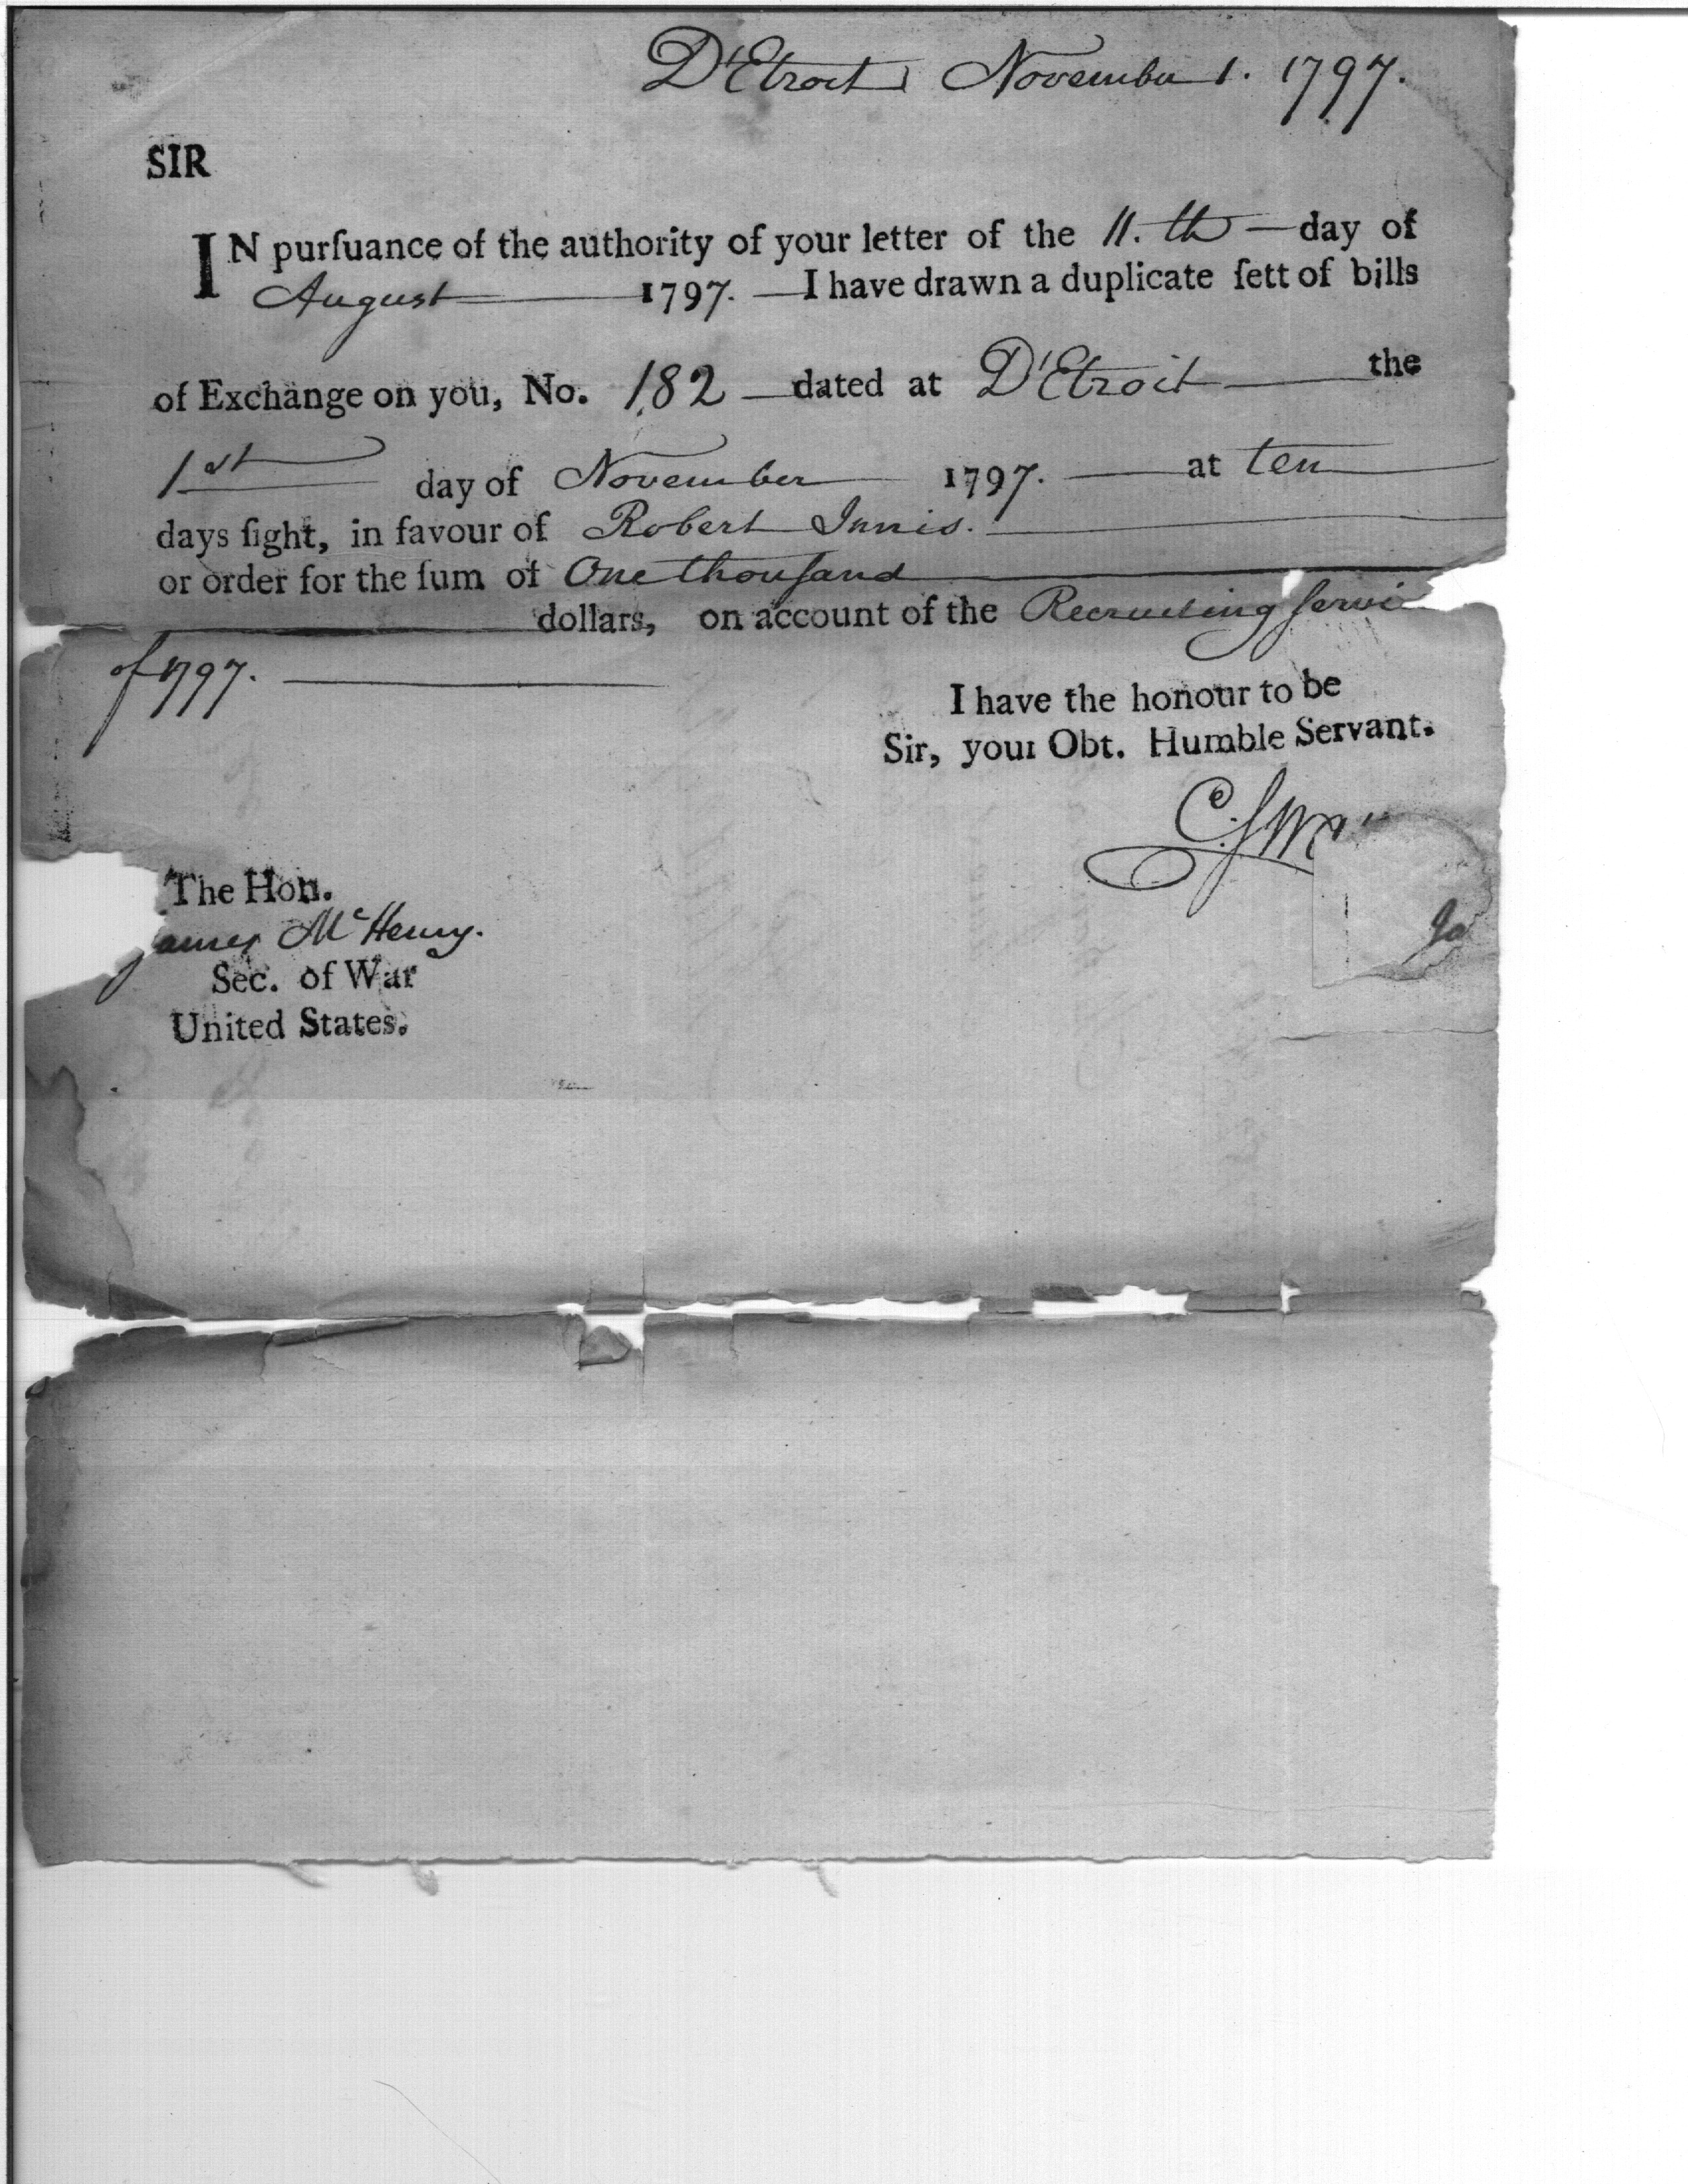 D'Etroit November 1. 1797.
SIR
IN purſuance of the authority of your letter of the 11.th — day of
August 1797. — I have drawn a duplicate ſett of bills
of Exchange on you, No. 182 — dated at D'Etroit — the
1st day of November 1797. — at ten
days ſight, in favour of Robert Innis.
or order for the ſum of One thouſand
dollars, on account of the Recruiting ſervi
of 1797.
I have the honour to be
Sir, your Obt. Humble Servant.
C. Sw
The Hon.
James McHenry.
Sec. of War
United States.